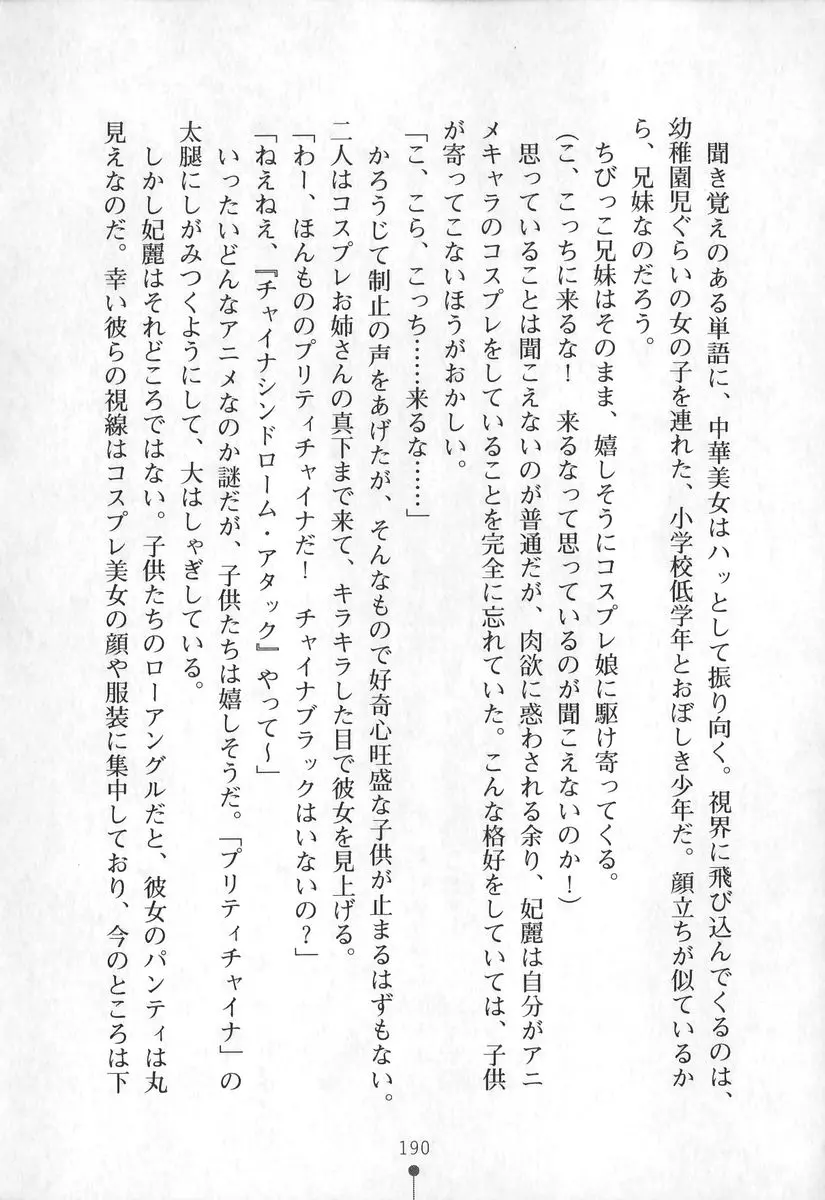 聞き覚えのある単語に、中華美女はハッとして振り向く。視界に飛び込んでくるのは、
幼稚園児ぐらいの女の子を連れた、小学校低学年とおぼしき少年だ。顔立ちが似ているか
ら、兄妹なのだろう。
ちびっこ兄妹はそのまま、嬉しそうにコスプレ娘に駆け寄ってくる。
(こ、こっちに来るな!　来るなって思っているのが聞こえないのか!)
思っていることは聞こえないのが普通だが、肉欲に惑わされる余り、妃麗は自分がアニ
メキャラのコスプレをしていることを完全に忘れていた。こんな格好をしていては、子供
が寄ってこないほうがおかしい。
「こ、こら、こっち……来るな……」
かろうじて制止の声をあげたが、そんなもので好奇心旺盛な子供が止まるはずもない。
二人はコスプレお姉さんの真下まで来て、キラキラした目で彼女を見上げる。
「わー、ほんもののプリティチャイナだ!　チャイナブラックはいないの?」
「ねえねえ、『チャイナシンドローム・アタック』やって〜」
いったいどんなアニメなのか謎だが、子供たちは嬉しそうだ。「プリティチャイナ」の
太腿にしがみつくようにして、大はしゃぎしている。
しかし妃麗はそれどころではない。子供たちのローアングルだと、彼女のパンティは丸
見えなのだ。幸い彼らの視線はコスプレ美女の顔や服装に集中しており、今のところは下
190